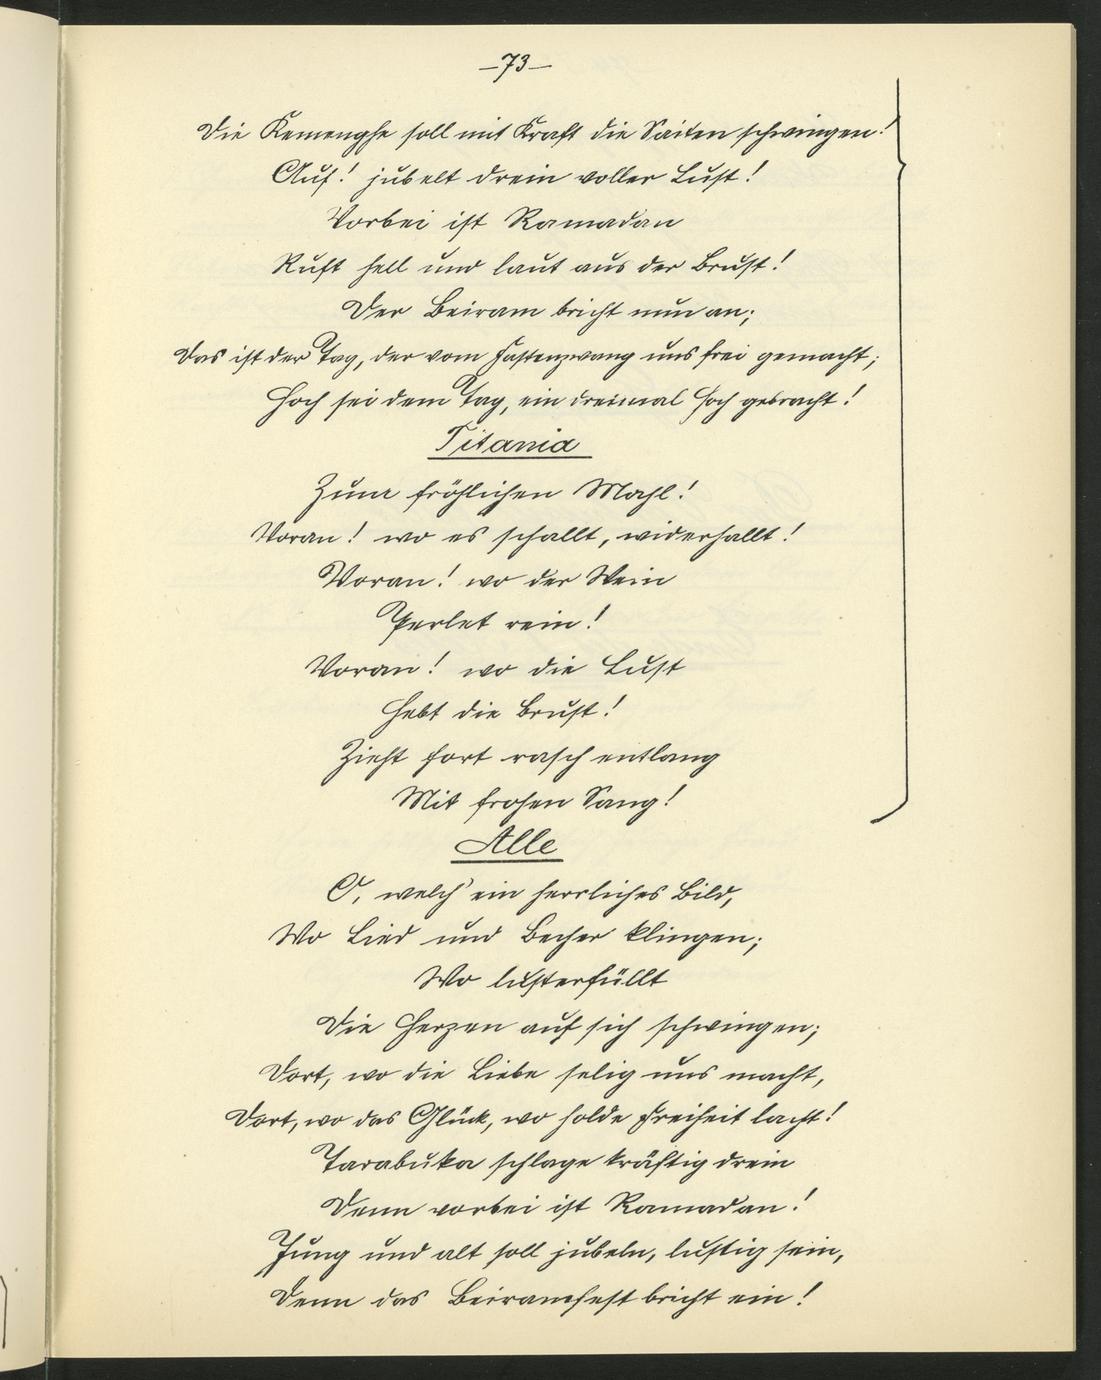 —73—
Die Kemenghe soll mit Kraft die Saiten schwingen!
Auf! jubelt drein voller Lust!
Vorbei ist Ramadan
Ruft hell und laut aus der Brust!
Der Beiram bricht nun an;
Das ist der Tag, der vom Fastenzwang uns frei gemacht;
Hoch sei dem Tag, ein dreimal Hoch gebracht!
Titania
Zum fröhlichen Mahl!
Voran! wo es schallt, widerhallt!
Voran! wo der Wein
Perlet rein!
Voran! wo die Lust
Hebt die Brust!
Zieht fort rasch entlang
Mit frohen Sang!
Alle
O, welch' ein herrliches Bild,
Wo Lied und Becher klingen;
Wo lusterfüllt
Die Herzen auf sich schwingen;
Dort, wo die Liebe selig uns macht,
Dort, wo das Glück, wo holde Freiheit lacht!
Tarabuka schlage kräftig drein
Denn vorbei ist Ramadan!
Jung und alt soll jubeln, lustig sein,
Denn das Beiramfest bricht ein!